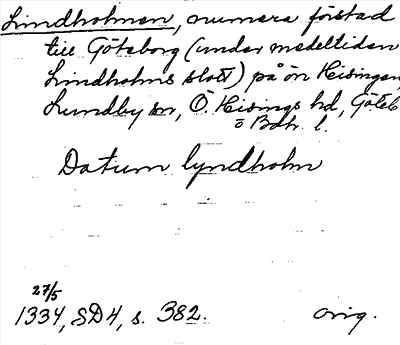 Lindholmen, numera förstad
till Göteborg (under medeltiden
Lindholms slott) på ön Hisingen,
Lundby sn, Ö. Hisings hd, Göteb
o Boh. l.
Datum lyndholm
27/5
1334, SD4, s. 382. orig.